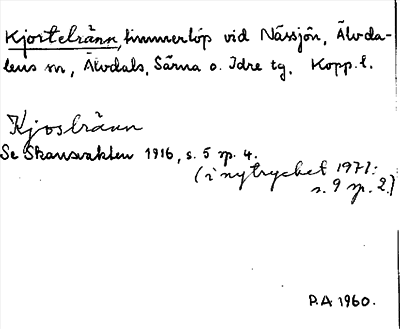 Kjortelränn, timmerlöp vid Nässjön, Älvda-
lens sn, Älvdals, Särna o. Idre tg, Kopp. l.
Kjosbränn
Se Skansvakten 1916, s. 5 sp. 4.
(i nytrycket 1971:
s. 9 sp. 2.)
P.A 1960.